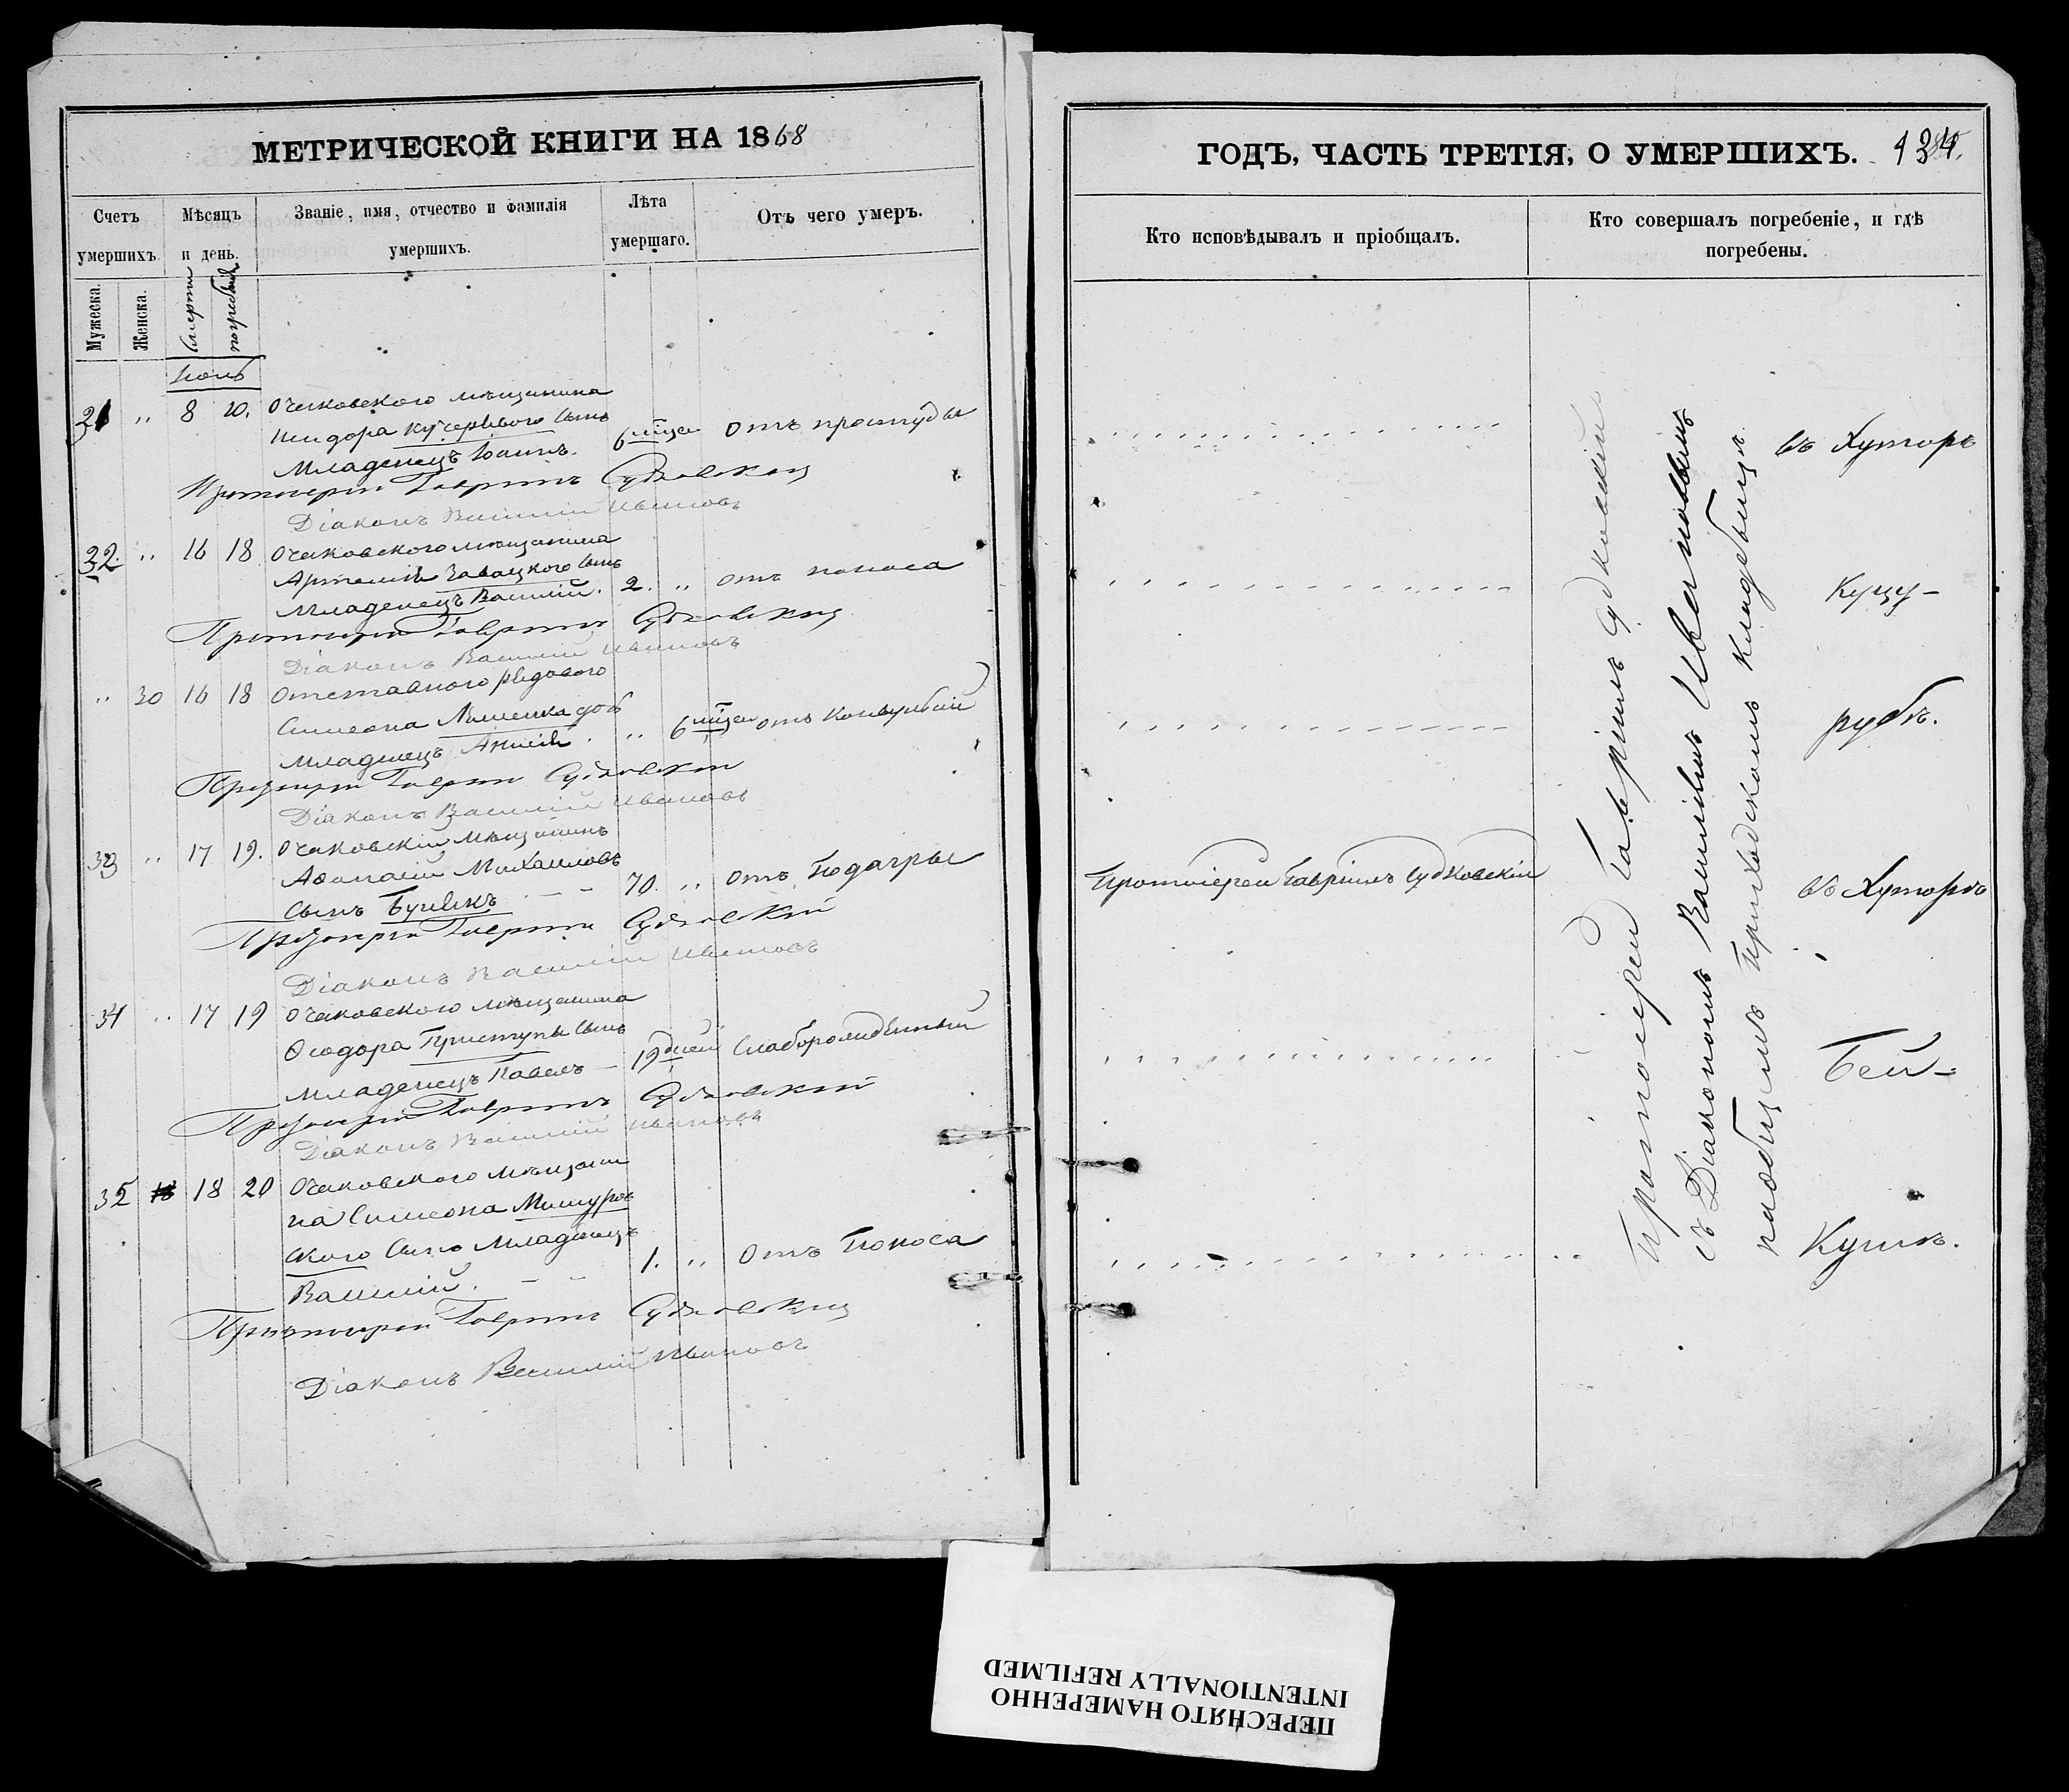 МЕТРИЧЕСКОЙ КНИГИ НА 1868
Счетъ умершихъ.
Мѣсяцъ и день.
Званіе, имя, отчество и фамилія умершихъ.
Лѣта умершаго.
Отъ чего умеръ.
Мужеска.
Женска.
Смерти
погребенія
31 " 8 10. Очаковского мѣщанина
Исидора Кучеряваго сынъ
Младенецъ Іоаннъ. 6 мѣсец отъ простуды
Протоіерей Гавріилъ Судковскій
Діаконъ Василій Ивановъ
32. " 16 18 Очаковского мѣщанина
Артемія Завацкого сынъ
Младенецъ Василій. 2. " отъ поноса
Протоіерей Гавріилъ Судковскій
Діаконъ Василій Ивановъ
" 30 16 18 Отставного рядового
Симеона дочь
Младенецъ " 6 мѣсец отъ
Протоіерей Гавріилъ Судковскій
Діаконъ Василій Ивановъ
33 " 17 19. Очаковскій мѣщанинъ
Афанасій Михаиловъ
сынъ 70. " отъ Подагры
Протоіерей Гавріилъ Судковскій
Діаконъ Василій Ивановъ
34 " 17 19 Очаковского мѣщанина
Ѳеодора Приступы сынъ
младенецъ Павелъ 19 дней Слаборожденный
Протоіерей Гавріилъ Судковскій
Діаконъ Василій Ивановъ
35 18 20 Очаковского мѣщани
на Симеона Мишуров
ского сынъ Младенецъ
Василій. 1. " отъ Поноса
Протоіерей Гавріилъ Судковскій
Діаконъ Василій Ивановъ
ГОДЪ, ЧАСТЬ ТРЕТІЯ, О УМЕРШИХЪ.
Кто исповѣдывалъ и пріобщалъ.
Кто совершалъ погребеніе, и гдѣ погребены.
Протоіерей Гавріилъ Судковскій
Протоіерей Гавріилъ Судковскій
съ Діакономъ Василіемъ Ивановымъ
на общемъ приходскомъ кладбищѣ
въ Хуторѣ
Куцу-
рубѣ.
въ Хуторѣ
Бей-
Кушъ.
ПЕРЕСНЯТО НАМЕРЕННО
INTENTIONALLY REFILMED